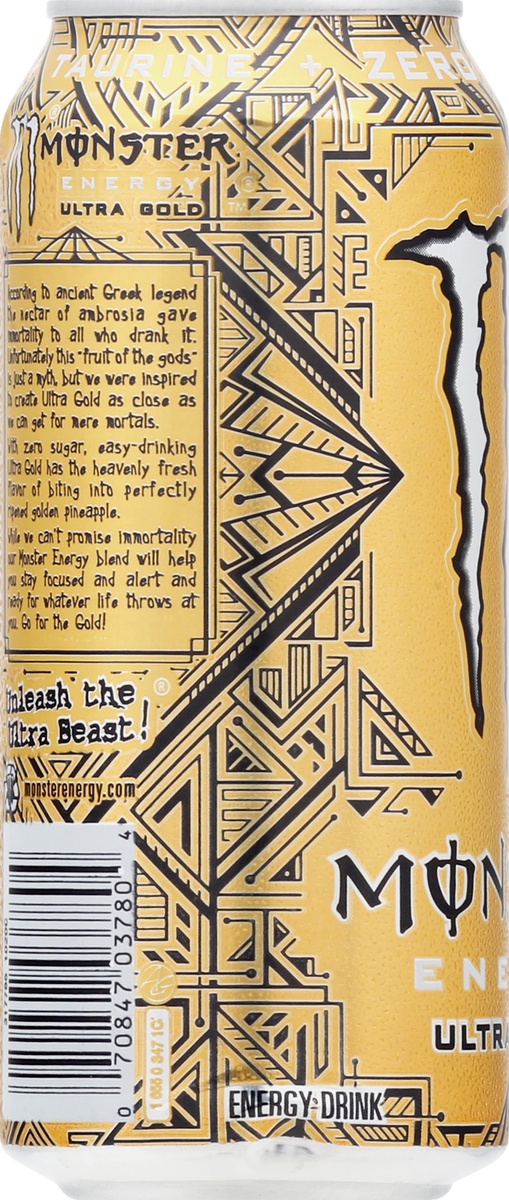 TAURINE + ZERO
MONSTER
ENERGY ®
ULTRA GOLD ™
According to ancient Greek legend
the nectar of ambrosia gave
immortality to all who drank it.
Unfortunately this "fruit of the gods"
is just a myth, but we were inspired
to create Ultra Gold as close as
we can get for mere mortals.
With zero sugar, easy-drinking
Ultra Gold has the heavenly fresh
flavor of biting into perfectly
ripened golden pineapple.
While we can't promise immortality
our Monster Energy blend will help
you stay focused and alert and
ready for whatever life throws at
you. Go for the Gold!
Unleash the ®
Ultra Beast!
monsterenergy.com
0 70847 03780 4
MON
ENE
ULTRA
ENERGY DRINK